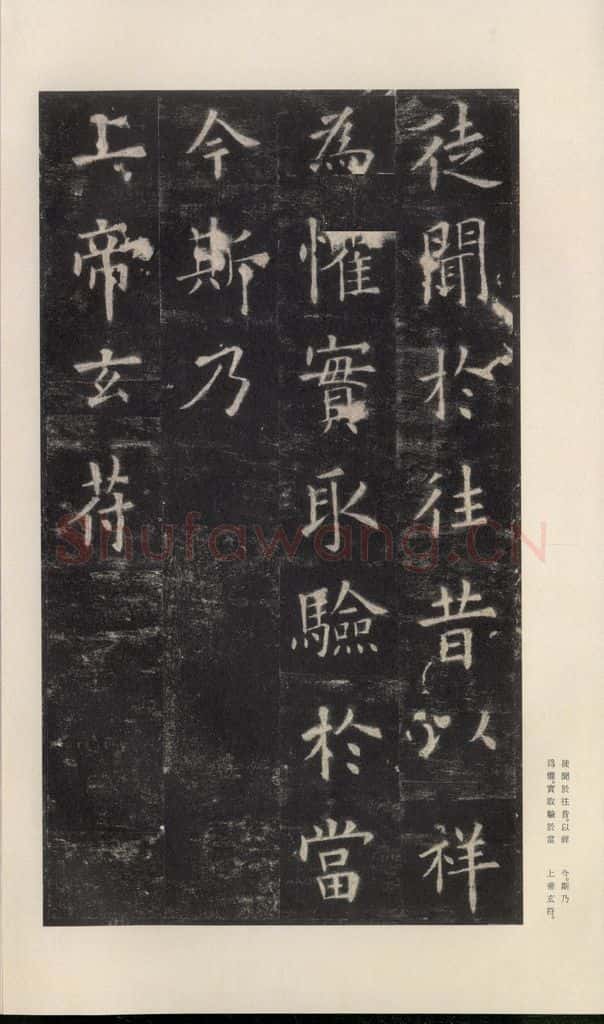 徒聞於往昔以祥
為懼實取驗於當
今斯乃
上帝玄符
徒聞於往昔。以祥
為懼。實取驗於當
今。斯乃
上帝玄符。
Shufawang.CN